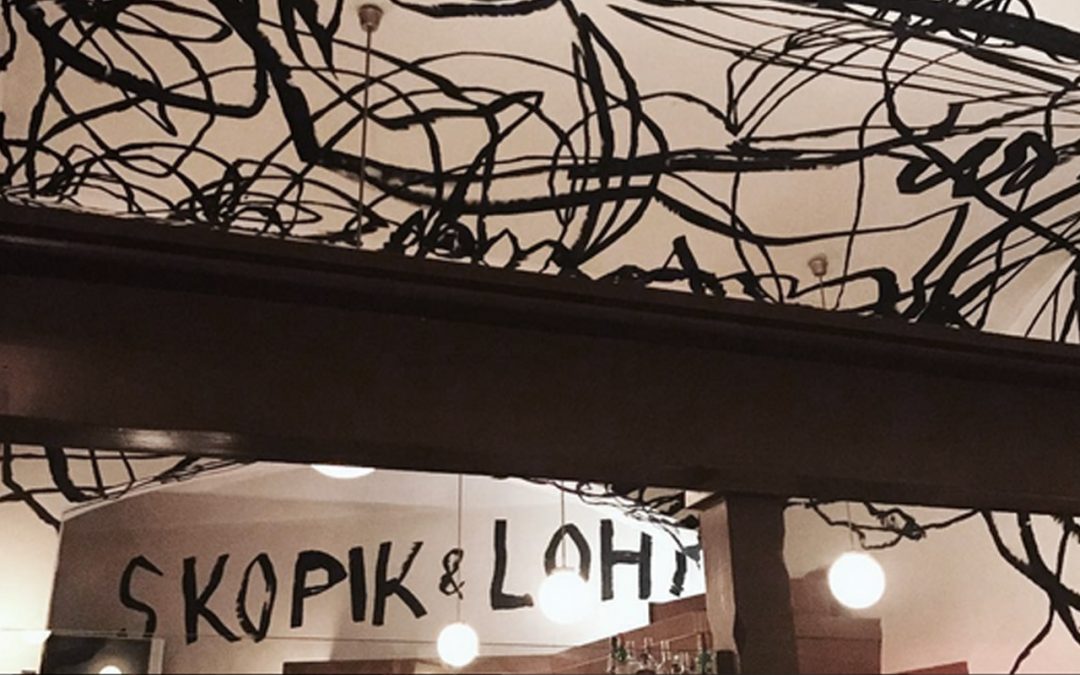 SKOPIK & LOH